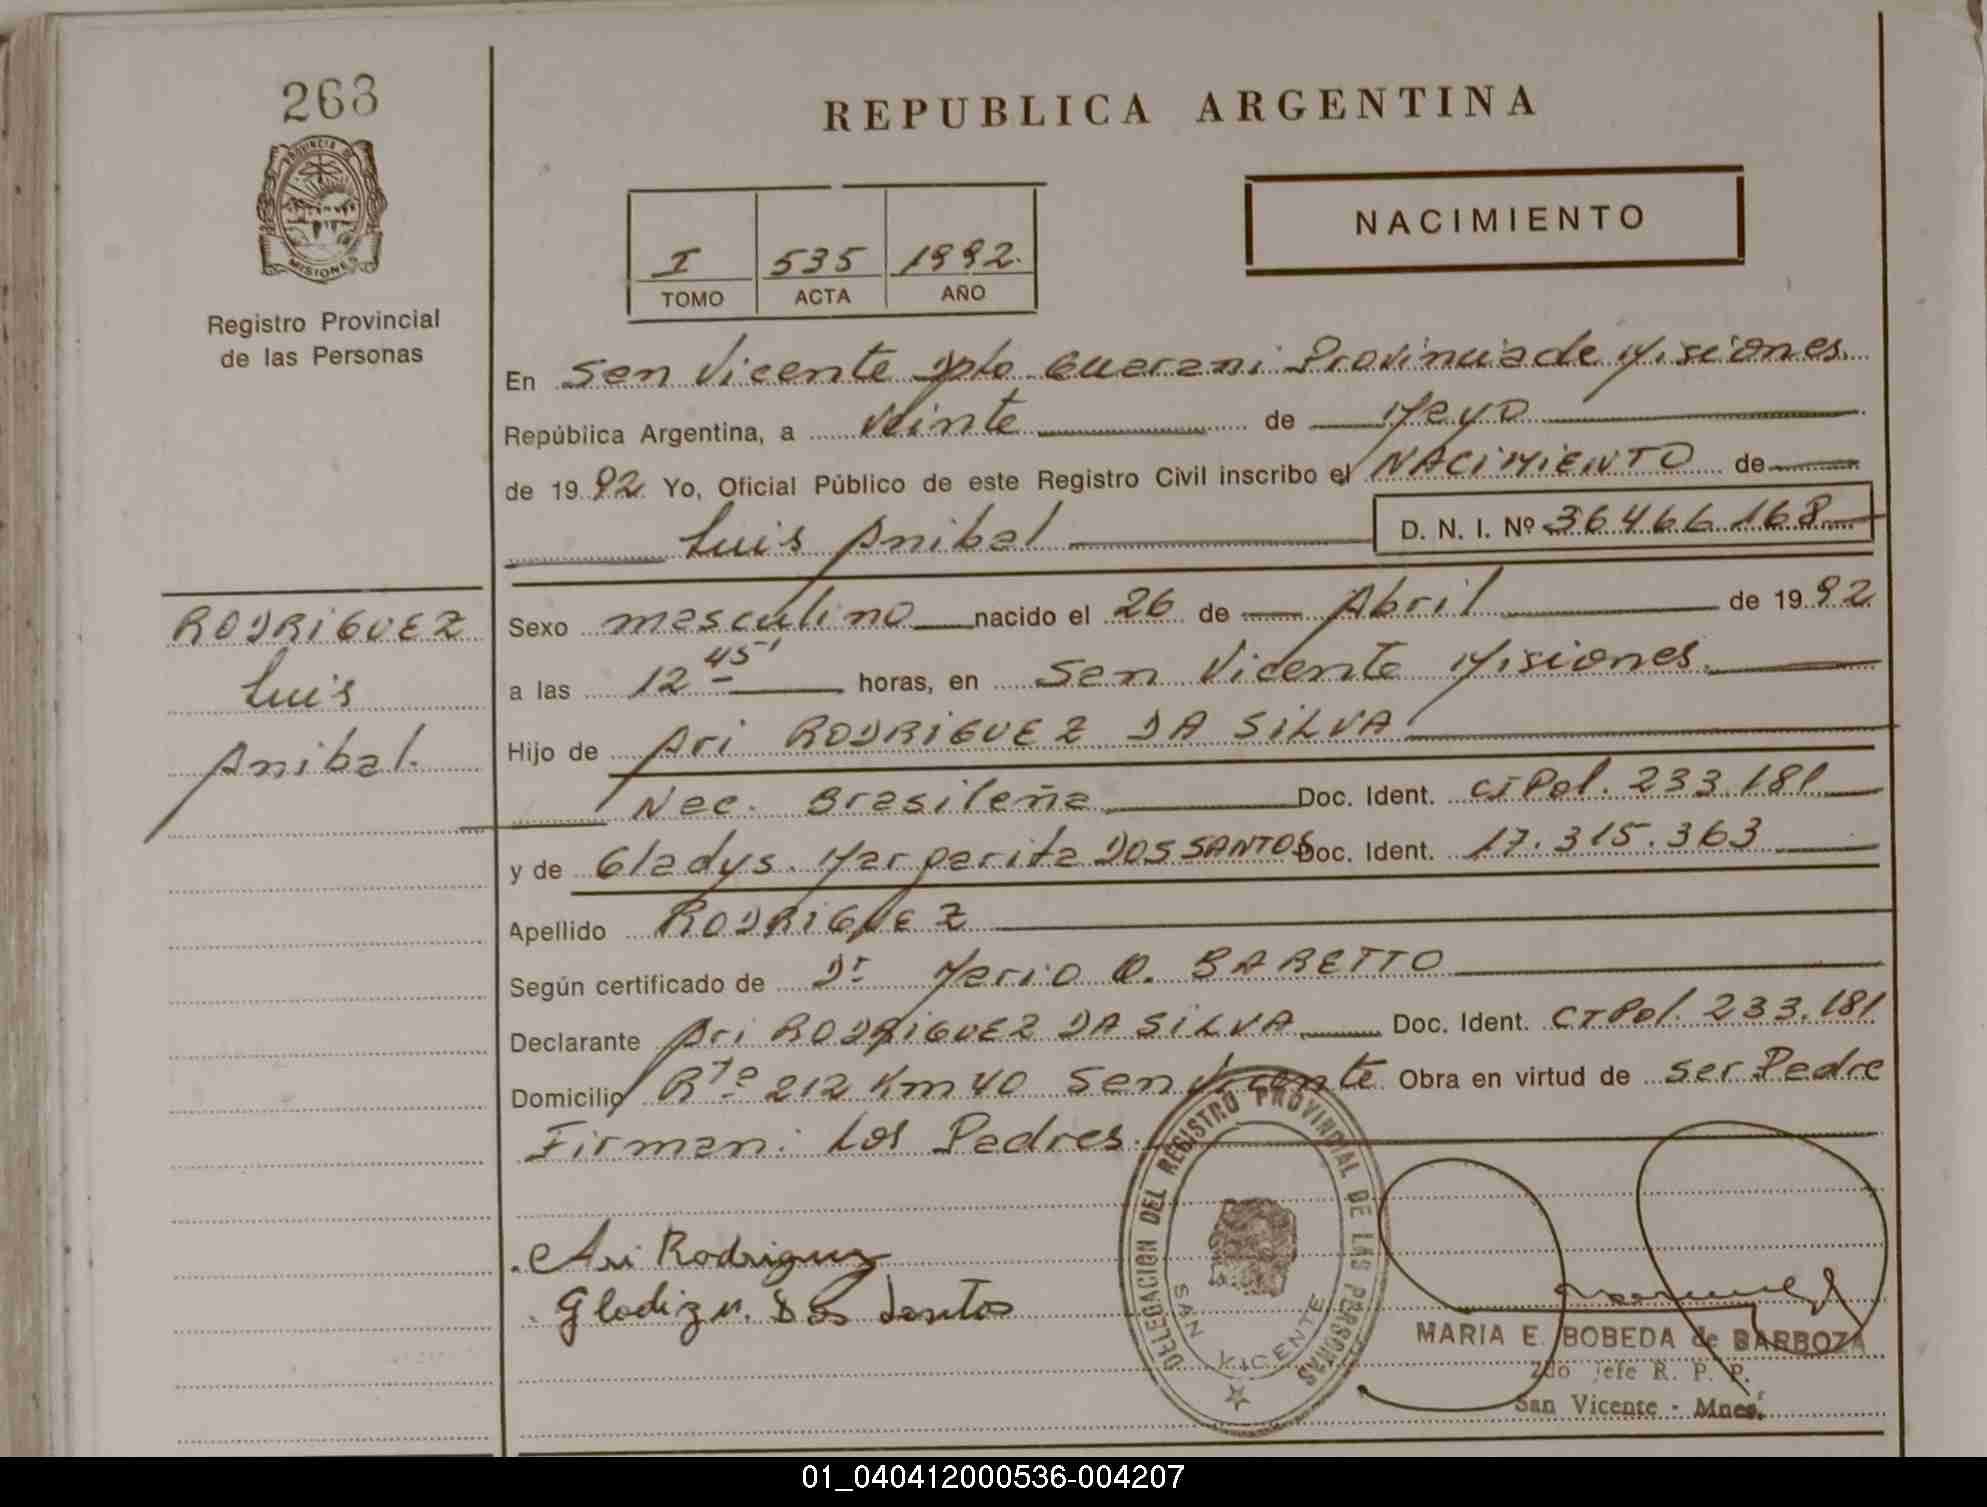 263
PROVINCIA DE
MISIONES
Registro Provincial
de las Personas
RODRIGUEZ
Luis
Anibal.
REPUBLICA ARGENTINA
NACIMIENTO
I 535 1992.
TOMO ACTA AÑO
En San Vicente Dpto Guarani Provincia de Misiones.
República Argentina, a Veinte de Mayo
de 1992. Yo, Oficial Público de este Registro Civil inscribo el NACIMIENTO de
Luis Anibal D. N. I. Nº 36466168
Sexo masculino nacido el 26 de Abril de 1992
a las 12 45' horas, en San Vicente Misiones.
Hijo de Ari RODRIGUEZ DA SILVA
Nac. Brasileña Doc. Ident. CI Pol. 233.181
y de Gladys Margarita DOS SANTOS Doc. Ident. 17.315.363
Apellido RODRIGUEZ
Según certificado de Dr Mario O. BARETTO
Declarante Ari RODRIGUEZ DA SILVA Doc. Ident. CI Pol. 233.181
Domicilio Rta 212 Km 40 San Vicente Obra en virtud de ser Padre
Firman: Los Padres.
Ari Rodriguez
Gladiz M. Dos Santos
DELEGACION DEL REGISTRO PROVINCIAL DE LAS PERSONAS
SAN VICENTE
MARIA E. BOBEDA de BARBOZA
2do Jefe R. P. P.
San Vicente - Mnes.
01_040412000536-004207